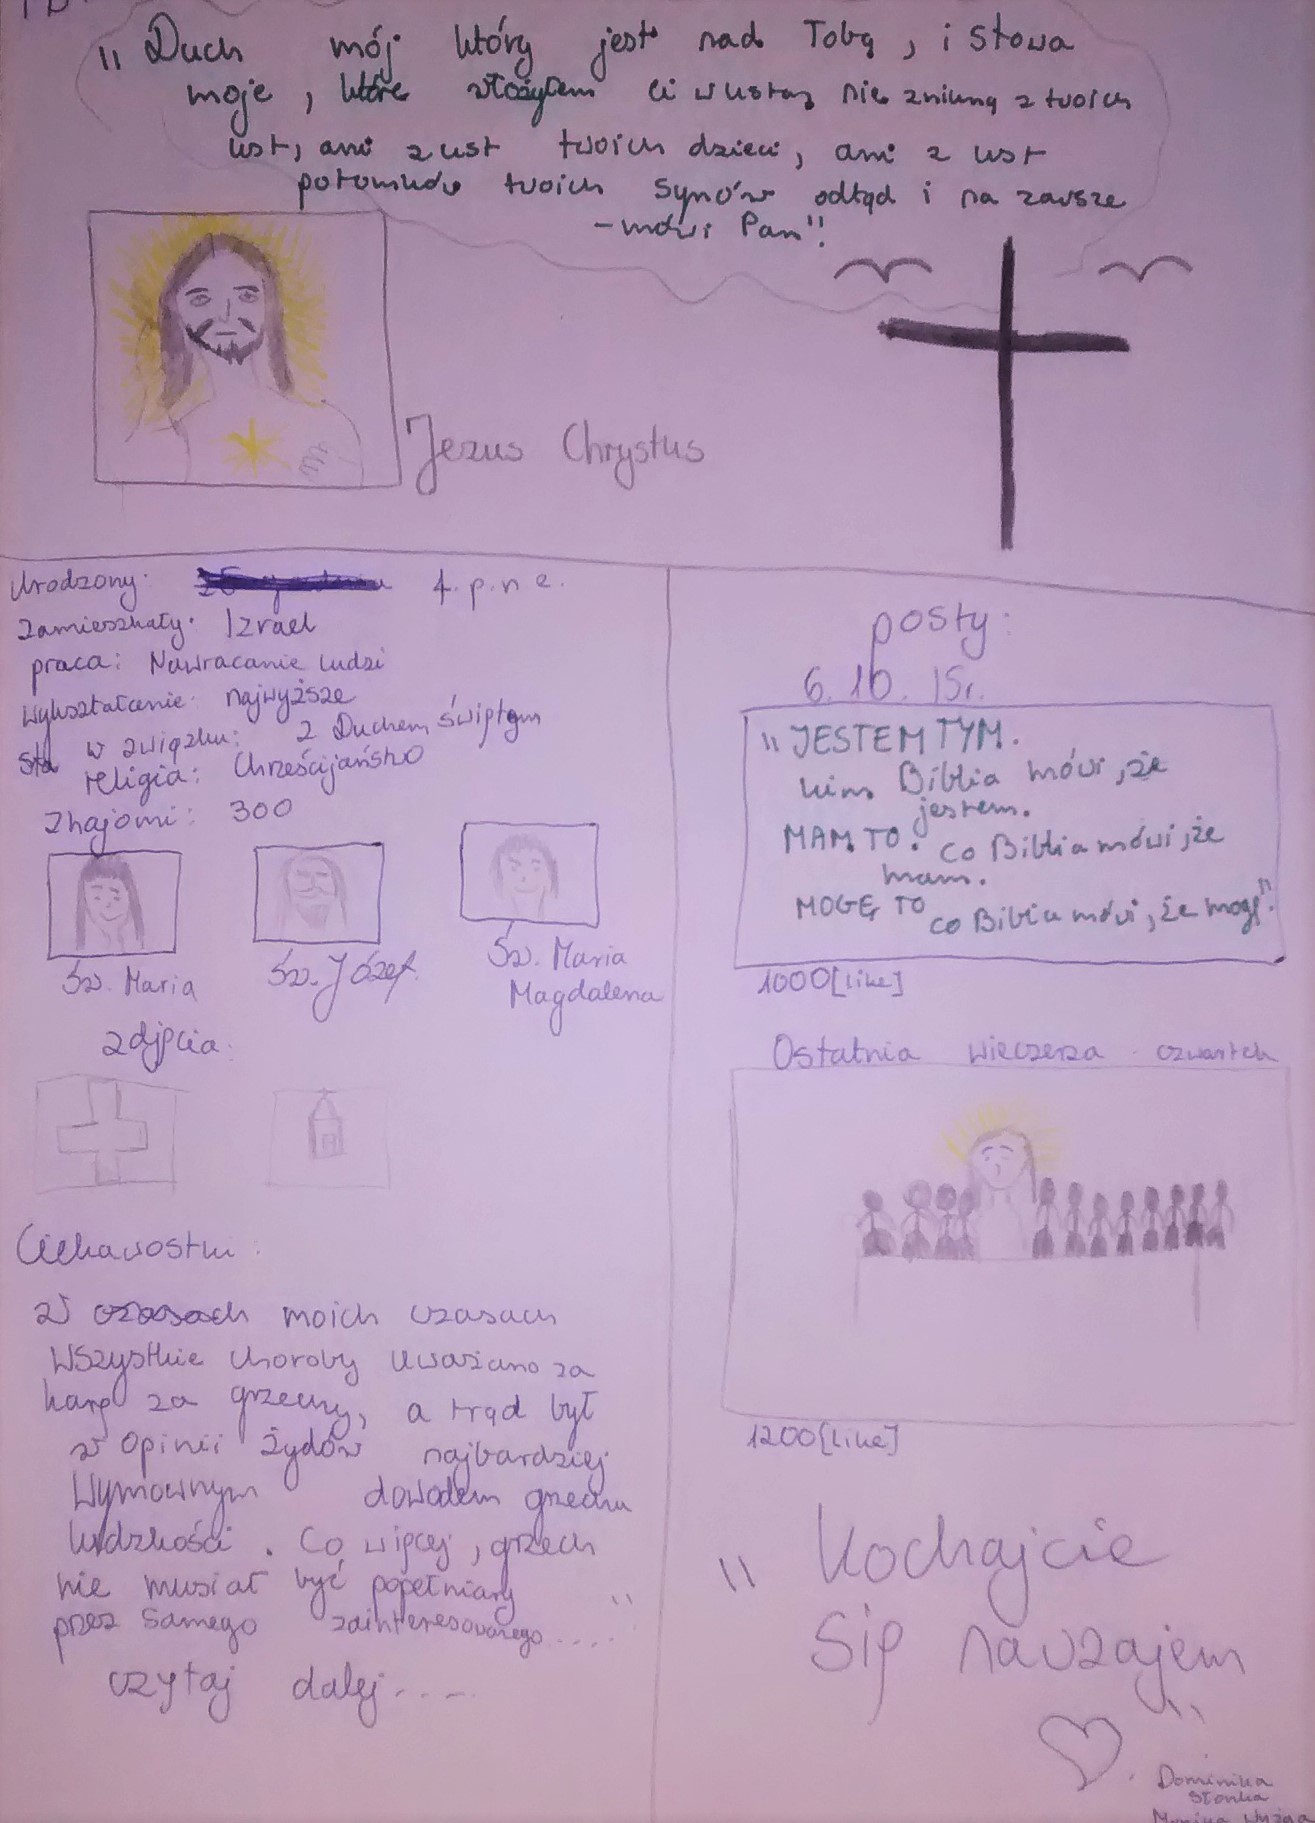 "Duch mój który jest nad Tobą, i słowa
moje, które włożyłem ci w usta, nie znikną z twoich
ust, ani z ust twoich dzieci, ani z ust
potomków twoich synów odtąd i na zawsze
- mówi Pan".
Jezus Chrystus
Urodzony: 4. p. n e.
Zamieszkały: Izrael
praca: Nawracanie ludzi
wykształcenie: najwyższe
w związku: z Duchem świętym
religia: Chrześcijaństwo
Znajomi: 300
Św. Maria
Św. Józef
Św. Maria
Magdalena
zdjęcia:
Ciekawostki:
w czasach moich czasach
wszystkie choroby uważano za
karę za grzechy, a trąd był
w opinii żydów najbardziej
wymownym dowodem grzechu
ludzkości. Co więcej, grzech
nie musiał być popełniany
przez samego zainteresowanego....."
czytaj dalej....
posty:
6. 10. 15r.
"JESTEM TYM.
kim Biblia mówi, że
jestem.
MAM TO. co Biblia mówi, że
mam.
MOGĘ TO co Biblia mówi, że mogę".
1000[like]
Ostatnia wieczerza - czwartek
1200[like]
"Kochajcie
się nawzajem"
Dominika
Słonka